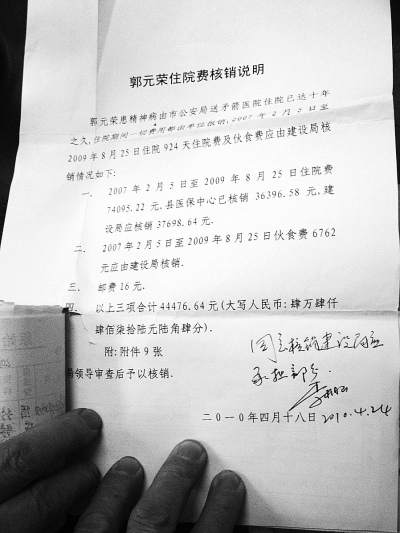 郭元荣住院费核销说明
郭元荣患精神病由市公安局送茅箭医院住院已达十年
之久,住院期间一切费用都由单位报销,2007年2月5日至
2009年8月25日住院924天住院费及伙食费应由建设局核
销情况如下:
一、 2007年2月5日至2009年8月25日住院费
74095.22元,县医保中心已核销36396.58元,建
设局应核销37698.64元.
二、 2007年2月5日至2009年8月25日伙食费6762
元应由建设局核销.
三、 邮费16元.
四、 以上三项合计44476.64元(大写人民币:肆万肆仟
肆佰柒拾陆元陆角肆分).
附:附件9张
局领导审查后予以核销.
同意核销建设局应
承担部分
二〇一〇年四月十八日
2010.4.24